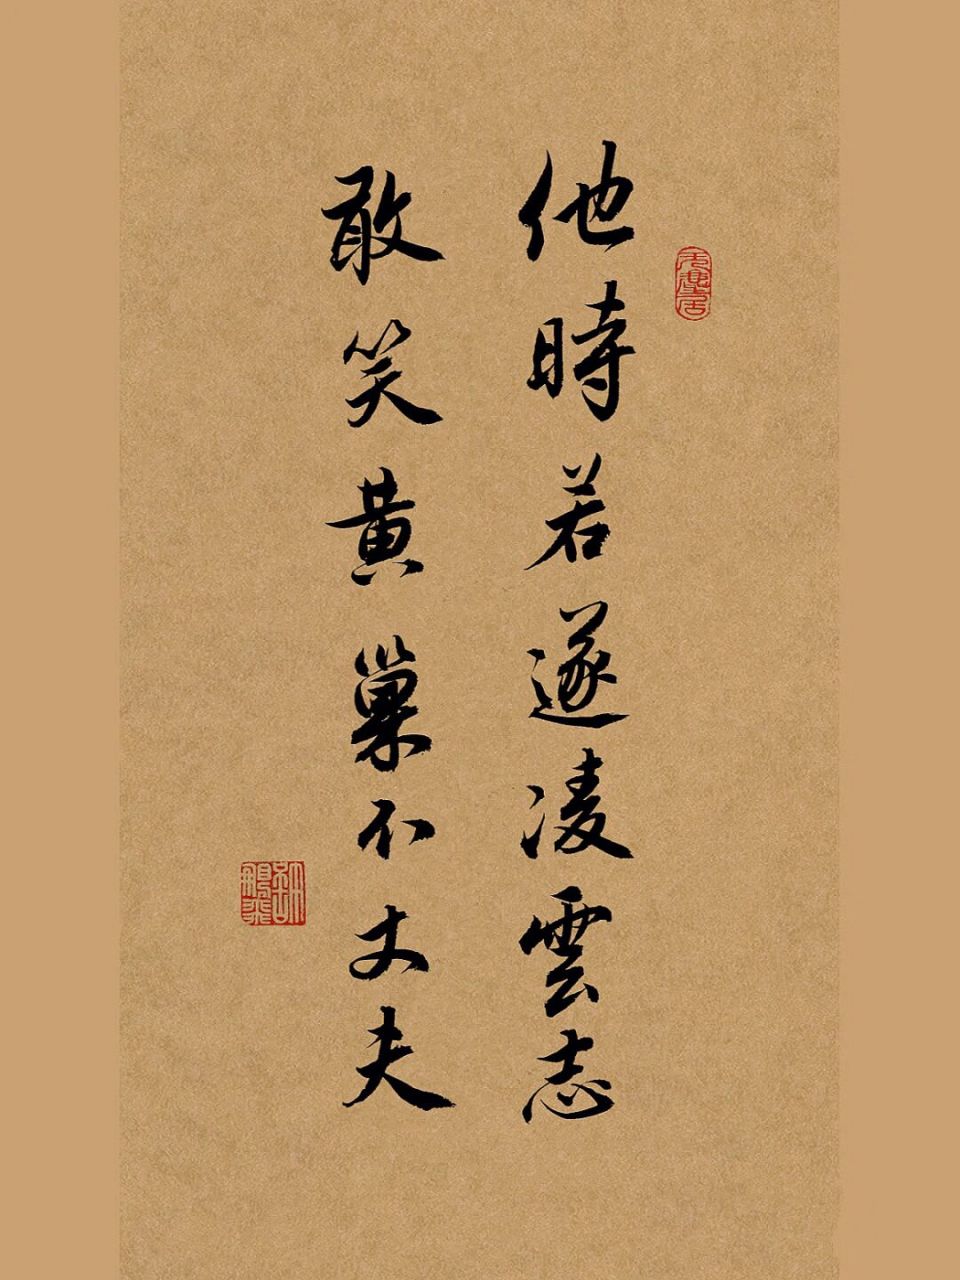 他時若遂凌雲志
敢笑黄巢不丈夫